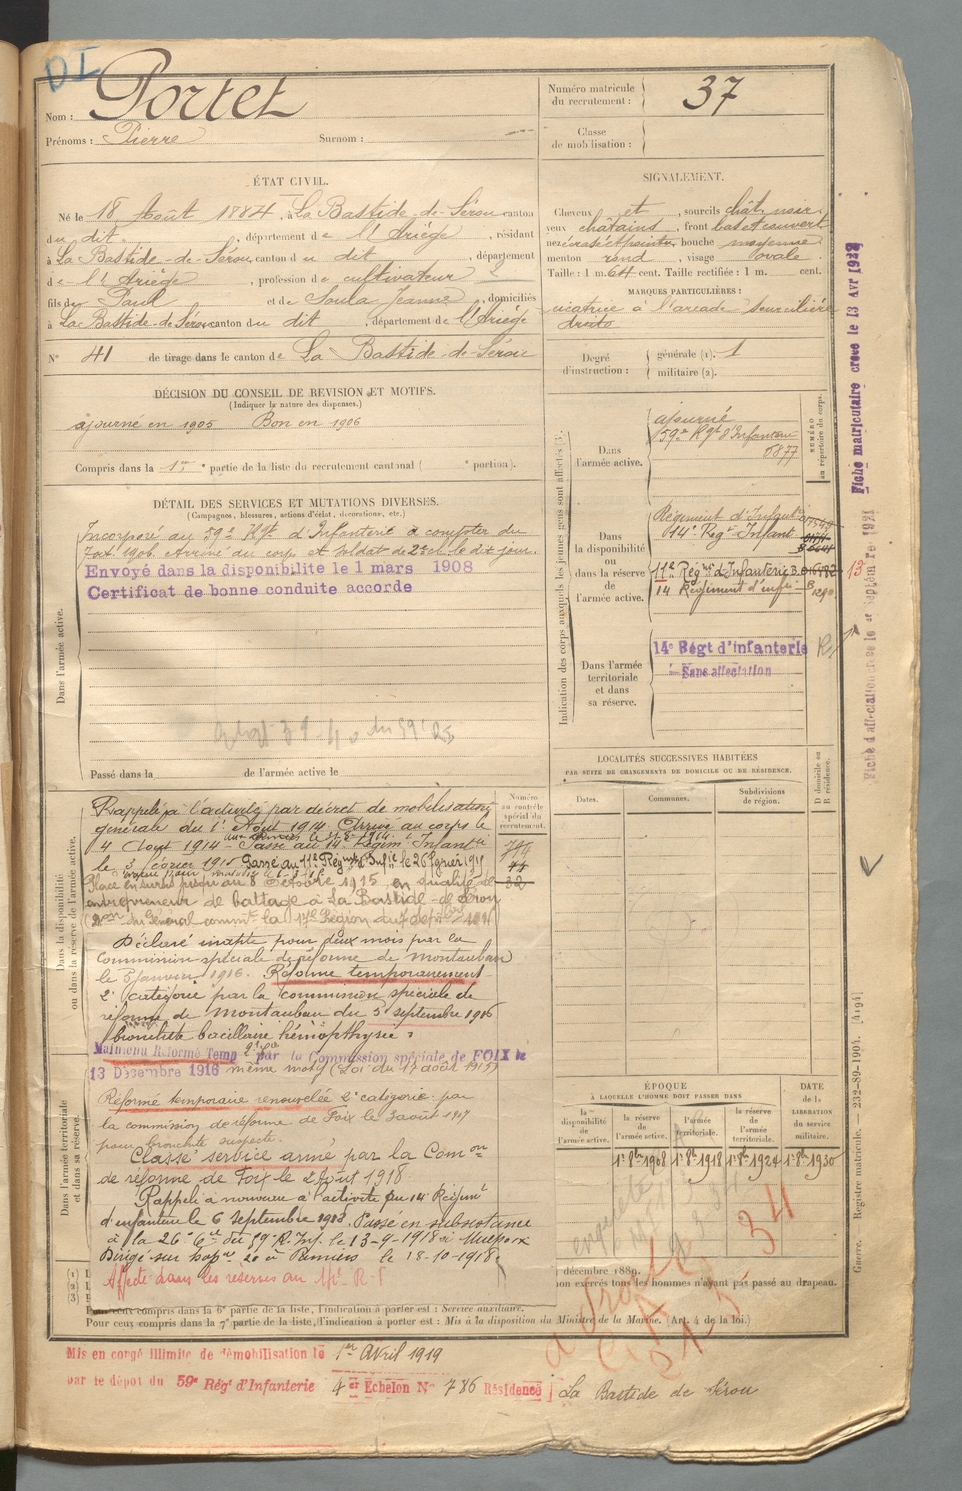 DI
Nom : Portet
Prénoms : Pierre Surnom :
Numéro matricule du recrutement : 37
Classe de mobilisation :
ÉTAT CIVIL.
Né le 18 Août 1884, à La Bastide-de-Sérou canton
du dit, département de l'Ariège, résidant
à La Bastide-de-Sérou, canton du dit, département
de l'Ariège, profession de cultivateur
fils de Paul et de Soula Jeanne, domiciliés
à La Bastide-de-Sérou canton du dit, département de l'Ariège
N° 41 de tirage dans le canton de La Bastide-de-Sérou
SIGNALEMENT.
Cheveux et, sourcils chât. noir.
yeux châtains, front bas et couvert
nez écrasé et pointu, bouche moyenne
menton rond, visage ovale.
Taille : 1 m. 64 cent. Taille rectifiée : 1 m. cent.
MARQUES PARTICULIÈRES :
cicatrice à l'arcade sourcilière
droite
Degré d'instruction : générale (1). 1
militaire (2).
DÉCISION DU CONSEIL DE REVISION ET MOTIFS.
(Indiquer la nature des dispenses.)
ajourné en 1905 Bon en 1906
Compris dans la 1re partie de la liste du recrutement cantonal ( e portion).
DÉTAIL DES SERVICES ET MUTATIONS DIVERSES.
(Campagnes, blessures, actions d'éclat, décorations, etc.)
Dans l'armée active.
Incorporé au 59e Rgt d'Infanterie à compter du
7 oct. 1906. Arrivé au corps et soldat de 2e cl. le dit jour.
Envoyé dans la disponibilite le 1 mars 1908
Certificat de bonne conduite accorde
Passé dans la de l'armée active le
Indication des corps auxquels les jeunes gens sont affectés (3).
NUMÉRO au répertoire du corps.
Dans l'armée active.
ajourné
59e Rgt d'Infanterie
6877
Dans la disponibilité ou dans la réserve de l'armée active.
Régiment d'Infanterie
14e Reg. Infant
11e Régnt d'Infanterie
14 Régiment d'infie
1290
Dans l'armée territoriale et dans sa réserve.
14e Régt d'infanterie
Sans affectation
Fiche matriculaire créée le 13 Avr 1922
Fiche d'affectation créée le 1er Septembre 1921
13
LOCALITÉS SUCCESSIVES HABITÉES
PAR SUITE DE CHANGEMENTS DE DOMICILE OU DE RÉSIDENCE.
Dates. Communes. Subdivisions de région. D domicile ou R résidence.
Dans la disponibilité ou dans la réserve de l'armée active.
Numéro au contrôle spécial du recrutement.
Rappelé à l'activité par décret de mobilisation
générale du 1er Août 1914. Arrivé au corps le
4 Août 1914 Passé au 14e Régim. Infantie
le 3 février 1915 Passé au 11e Régimt d'Infie le 26 fevrier 1915
Placé en sursis jusqu'au 8 Octobre 1915 en qualité de
entrepreneur de battage à La Bastide-de-Sérou
Déclaré inapte pour deux mois par la
Commission spéciale de réforme de Montauban
le 3 janvier 1916. Réformé temporairement
2e catégorie par la commission spéciale de
réforme de Montauban du 5 septembre 1916
bronchite bacillaire hémoptysie
Maintenu Réformé Temp 2e par la Commission spéciale de FOIX le
13 Décembre 1916 même motif (Loi du 17 août 1915)
Réforme temporaire renouvelée 2e catégorie par
la commission de réforme de Foix le 3 août 1917
pour bronchite suspecte.
Classé service armé par la Comon
de réforme de Foix le 2 Août 1918.
Dans l'armée territoriale et dans sa réserve.
Rappelé à nouveau à l'activité au 14 Régimt
d'infanterie le 6 septembre 1918. Passé en subsistance
à la 26e Cie du 59e R. Inf. le 13-9-1918 à
Dirigé sur à Pamiers le 18-10-1918.
Affecté dans les réserves au
ÉPOQUE
À LAQUELLE L'HOMME DOIT PASSER DANS
la disponibilité de l'armée active. la réserve de l'armée active. l'armée territoriale. la réserve de l'armée territoriale.
DATE de la LIBÉRATION du service militaire.
1er 8bre 1908 1er 8bre 1918 1er 8bre 1924 1er 8bre 1930
34
décembre 1889.
non exercés tous les hommes n'ayant pas passé au drapeau.
Pour ceux compris dans la 6e partie de la liste, l'indication à porter est : Service auxiliaire.
Pour ceux compris dans la 7e partie de la liste, l'indication à porter est : Mis à la disposition du Ministre de la Marine. (Art. 4 de la loi.)
Guerre. Registre matricule. — 232-89-1904. [A194]
Mis en congé illimité de démobilisation le 1er Avril 1919
par le dépôt du 59e Rég d'Infanterie 4e Echelon N° 786 Résidence La Bastide de Sérou